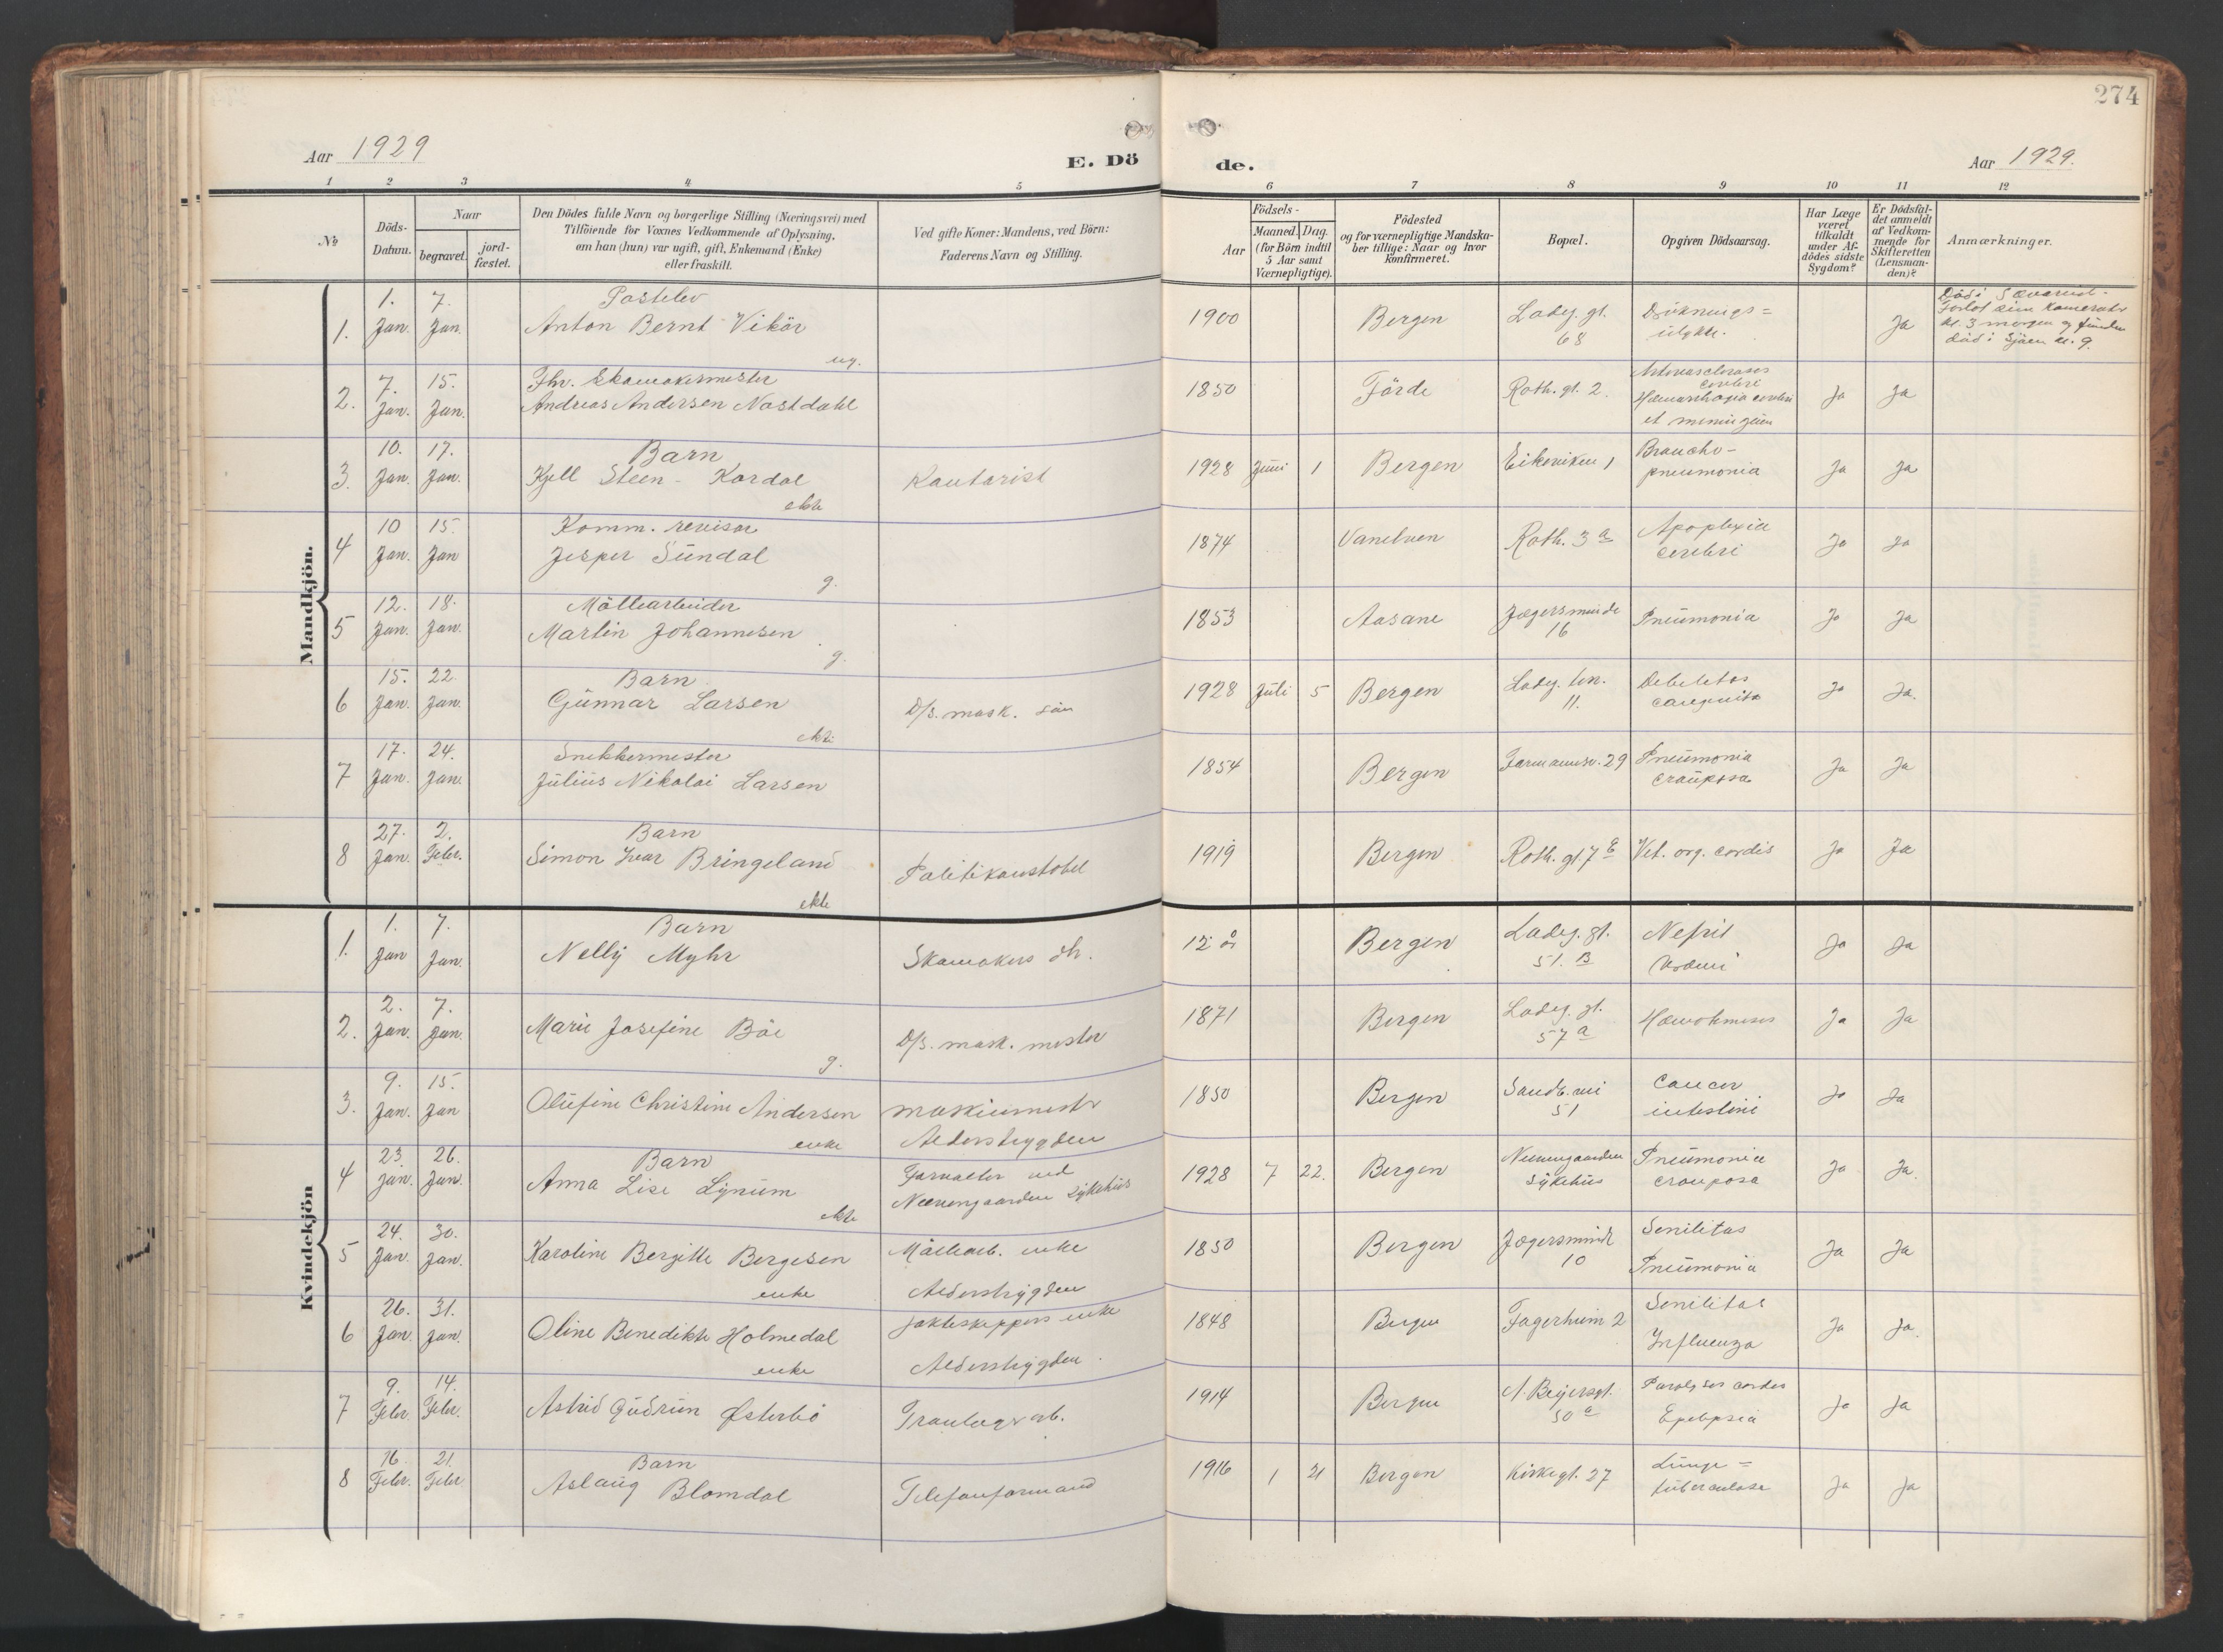 274
Aar 1929
E. Dö
de.
Aar 1929.
1 2 3 4 5 6 7 8 9 10 11 12
№
Döds-
Datum.
Naar
begravet.
jord-
fæstet.
Den Dödes fulde Navn og borgerlige Stilling (Næringsvei) med
Tilföiende for Voxnes Vedkommende af Oplysning,
om han (hun) var ugift, gift, Enkemand (Enke)
eller fraskilt.
Ved gifte Koner: Mandens, ved Börn:
Faderens Navn og Stilling.
Födsels-
Aar
Maaned. Dag.
(for Börn indtil
5 Aar samt
Værnepligtige).
Födested
og for værnepligtige Mandska-
ber tillige: Naar og hvor
konfirmeret.
Bopæl.
Opgiven Dödsaarsag.
Har Læge
været
tilkaldt
under Af-
dödes sidste
Sygdom?
Er Dödsfal-
det anmeldt
af Vedkom-
mende for
Skifteretten
(Lensman-
den)?
Anmærkninger.
Mandkjön.
1. 1. Jan. 7. Jan. Postelev
Anton Bernt Vikör
ug.
1900 Bergen Ladeg. gt. 68 Drüknings=
ülykke. Ja
Död i
Forlot sine kamerater
kl. 3 morgen og fünden
död i Sjöen kl. 9.
2. 7. Jan. 15. Jan. Fhr. Skomakermester
Andreas Andersen Nostdahl
1850 Förde Roth. gt. 2. cerebri
Hæmorrhagia cerebri
et Ja Ja
3. 10. Jan. 17. Jan. Barn
Kjell Steen-Kordal
ekte
Kontorist
1928 Jüni 1 Bergen Eikeviken 1 Broncho-
pneumonia Ja Ja
4 10 Jan. 15. Jan Komm. revisor
Jesper Sündal
g.
1874 Vanelven Roth. 3 a Apoplexia
cerebri Ja Ja
5 12. Jan. 18. Jan. Möllearbeider
Martin Johannesen
g.
1853 Aasane Jægersminde
16 Pneümonia Ja Ja
6 15. Jan. 22. Jan. Barn
Günnar Larsen
ekte
D/S. mask. sön
1928 Jüli 5 Bergen Ladeg. 
11. Debilitas
congenita Ja Ja.
7 17. Jan. 24. Jan. Snekkermester
Jüliüs Nikolai Larsen
1854 Bergen 29 Pneümonia
croüposa Ja Ja
8 27. Jan. 2. Febr. Barn
Simon Ivar Bringeland
ekte
Politikonstabel
1919 Bergen Roth. gt. 7 Vit. org. cordis Ja Ja
Kvindekjön
1. 1. Jan 7. Jan. Barn
Nelly Myhr
Skomakers dtr.
12 år Bergen Ladeg. gt.
51. B Nefrit
Ja Ja
2. 2. Jan. 7. Jan. Marie Josefine Böe
g.
D/S. mask. mester
1871 Bergen Ladeg. gt.
57 a Ja Ja
3. 9. Jan. 15. Jan Olüfine Christine Andersen
enke
maskinmestr
Alderstrygden
1850 Bergen Sandv. vei
51 Cancer
intestini Ja Ja
4 23. Jan. 26. Jan. Barn
Anna Lise Lynüm
ekte
Forvalter ved
Neevengaarden sykehüs
1928 7 22. Bergen Neevengaarden
sykehüs Pneümonia
crouposa Ja Ja.
5 24. Jan. 30. Jan. Karoline Bergitte Bergesen
enke
Möllearb. enke
Alderstrygden
1850 Bergen Jægersmind
10 Senilitas
Pneümonia Ja Ja
6 26. Jan. 31. Jan. Oline Benedikte Holmedal
enke
Jakteskippers enke
Alderstrygden.
1848 Bergen Fagerheim 2 Senilitas
Influenza Ja Ja.
7 9. Febr. 14. Febr. Astrid Güdrün Østerbö
1914 Bergen 50 a Paralysis cordis
Epilepsia Ja Ja
8 16. Febr. 21. Febr. Barn
Aslaüg Blomdal
Telefonformand
1916 1 21 Bergen Kirkegt. 27 Lünge=
tüberculose Ja Ja